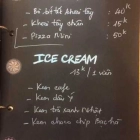 - Bò bít tết khoai tây : 40k
- Khoai tây chiên : 15k
- Pizza mini : 50k
ICE CREAM
15k / 1 viên
- Kem cafe
- Kem dâu Ý
- Kem trà xanh Nhật
- Kem chocochip bạc hà